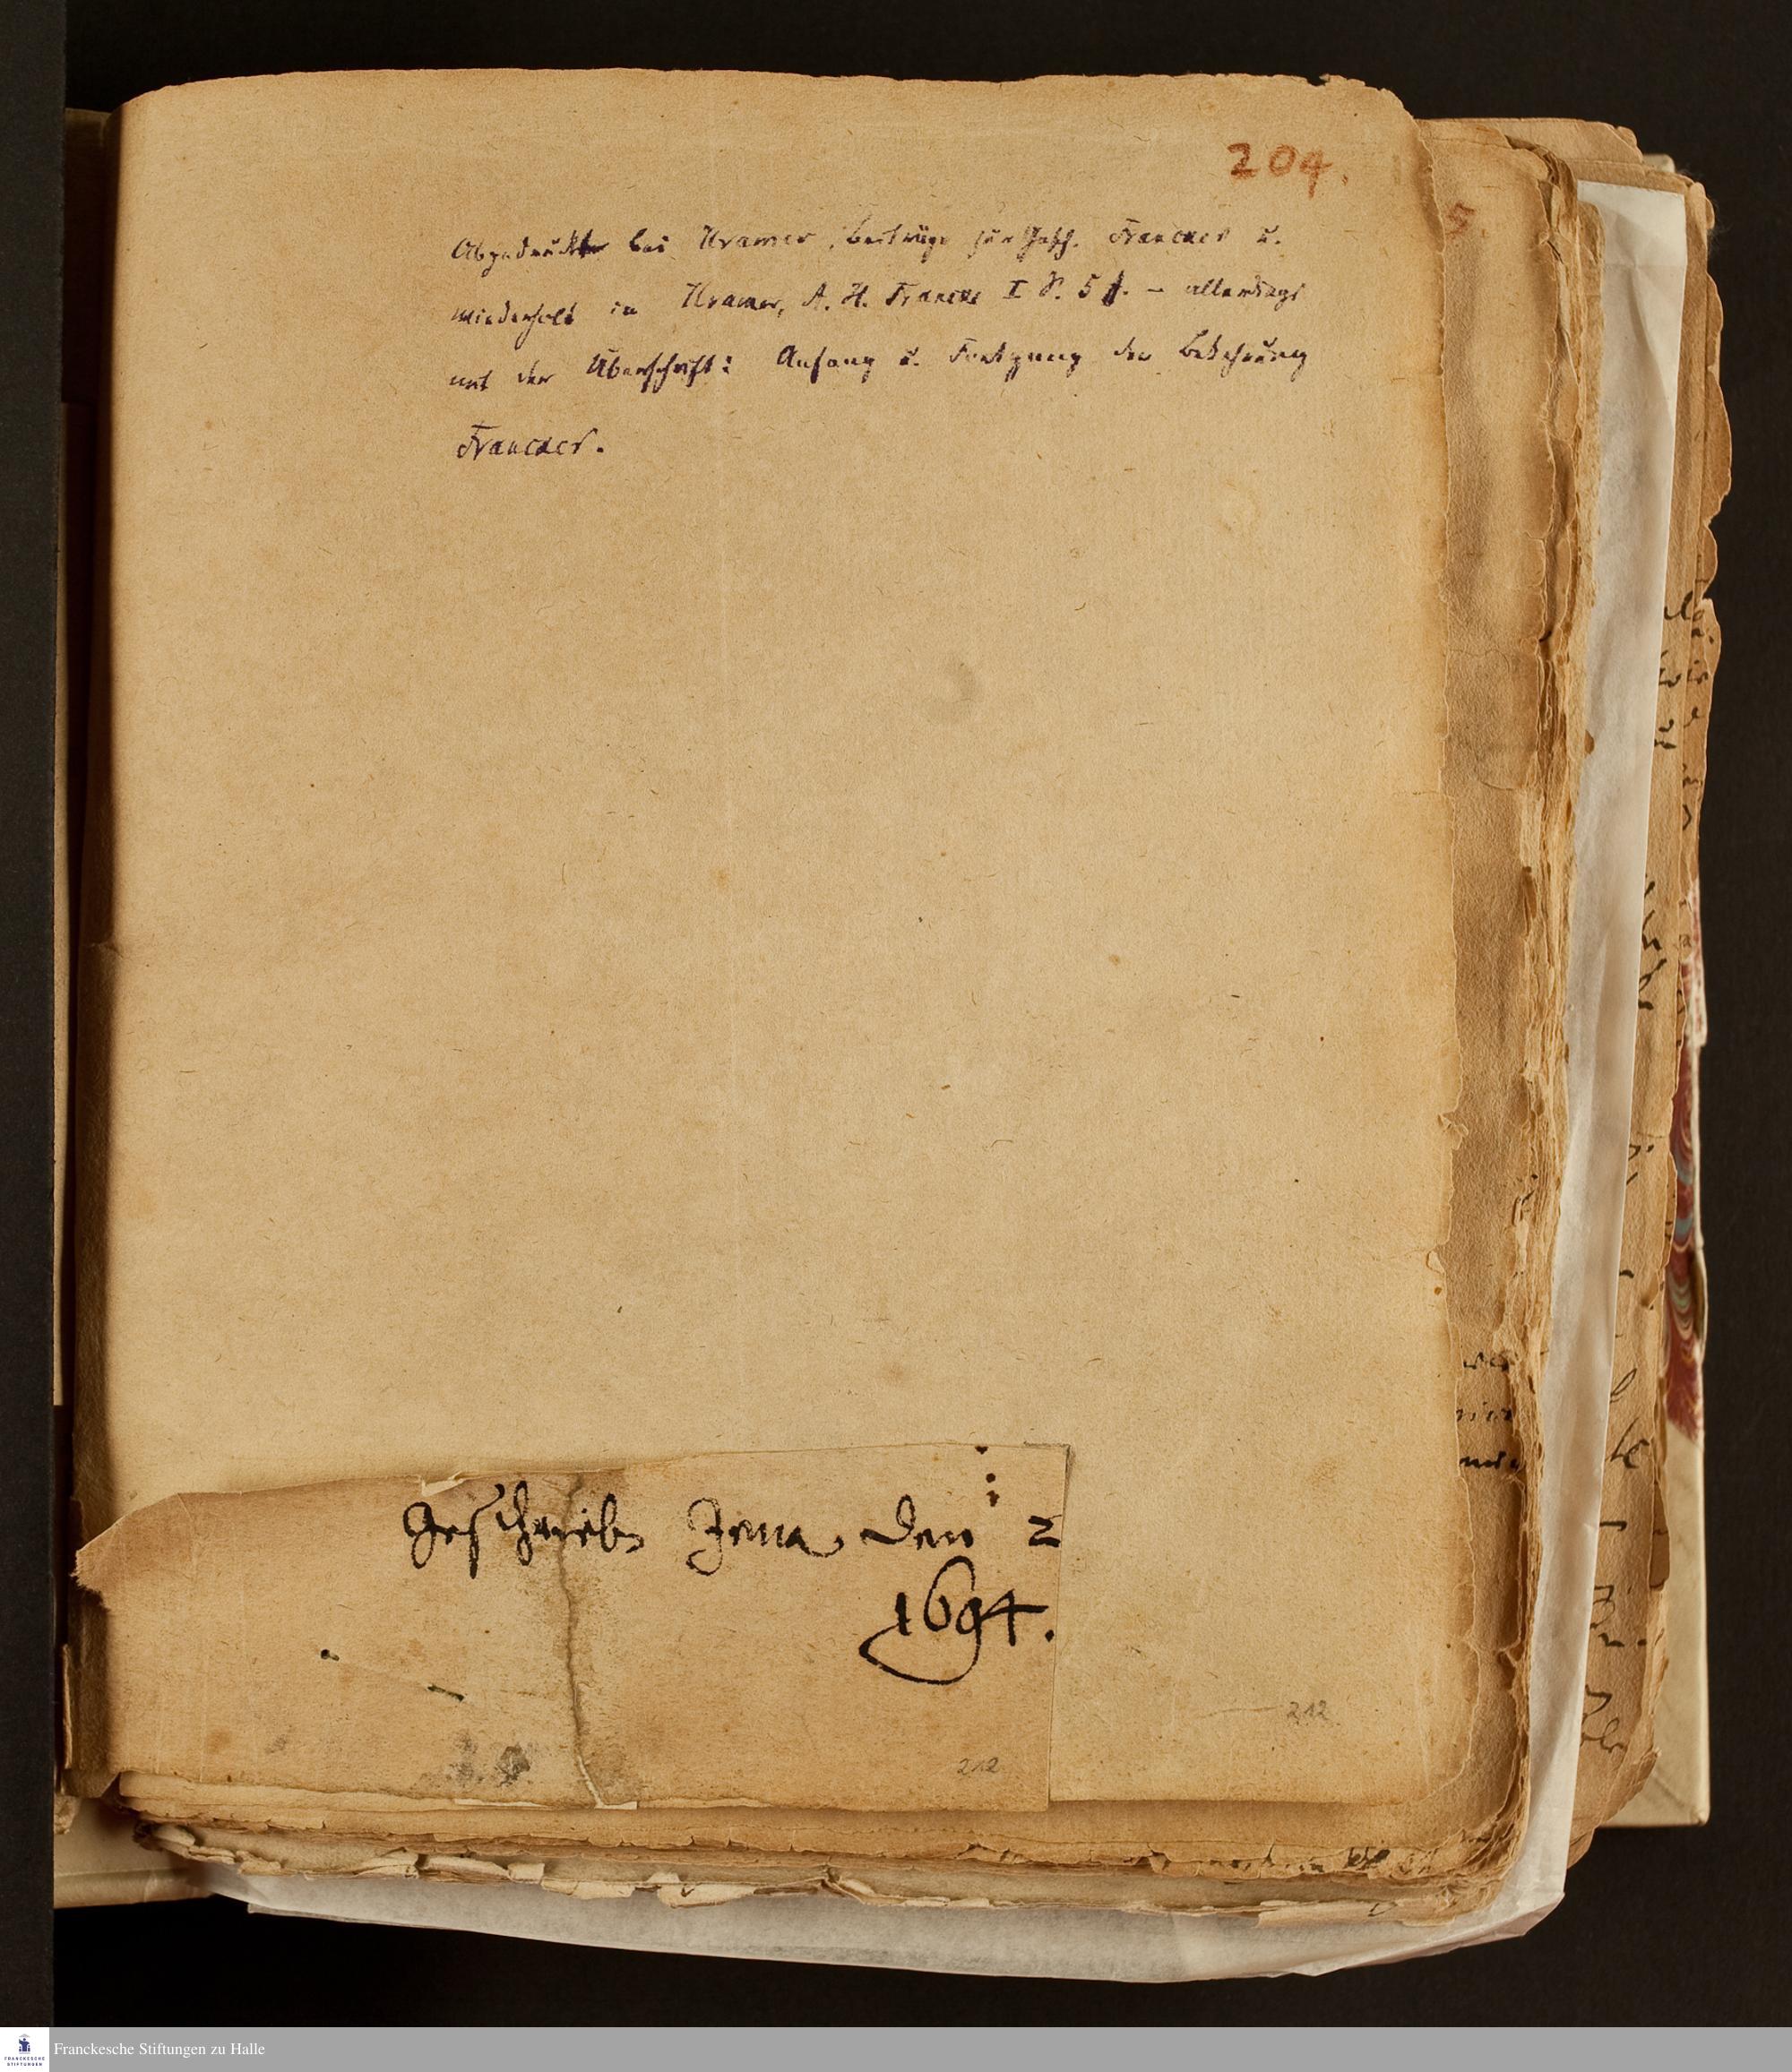 204.
Abgedruckt bei Kramer, Beiträge zur Gesch. Franckes u.
wiederholt in Kramer, A. H. Francke I S. 5 f. – allerdings
mit der Überschrift: Anfang u. Fortgang der Bekehrung
Franckes.
5.
Geschrieben Jena den 2
1694.
212
212
Franckesche Stiftungen zu Halle
FRANCKESCHE
STIFTUNGEN